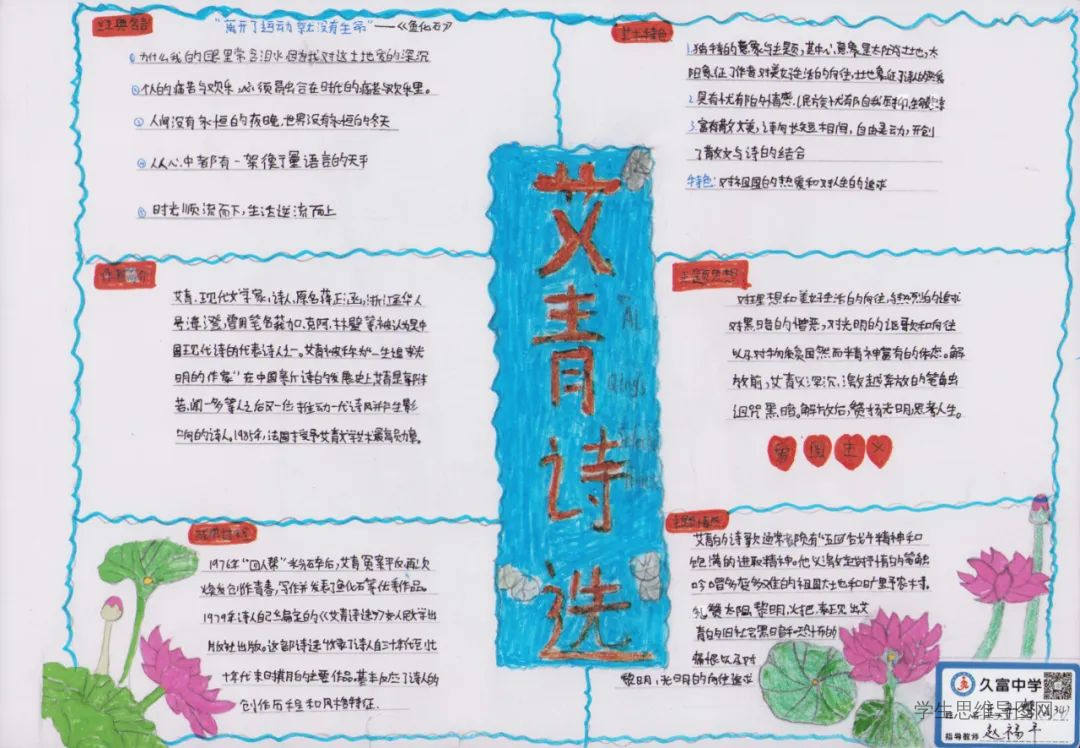 经典名言
"离开了运动就没有生命"——《鱼化石》
① 为什么我的眼里常含泪水因为我对这土地爱的深沉
② 个人的痛苦与欢乐,必须融合在时代的痛苦与欢乐里。
③ 人间没有永恒的夜晚,世界没有永恒的冬天
④ 人人心中都有一架衡量语言的天平
⑤ 时光顺流而下,生活逆流而上
艺术特色
1.独特的意象与主题,其中心意象是太阳与土地,太
阳象征了作者对美好生活的向往,土地象征了诗人的
2.具有忧郁的情感
3.富有散文美,诗句长短相间,自由灵动,开创
了散文与诗的结合
特色:对祖国的热爱和对人生的追求
艾青诗选
AI
Qing
作者简介
艾青,现代文学家,诗人,原名蒋正涵,浙江金华人
号海澄,曾用笔名莪加,克阿,林壁等被认为是中
国现代诗的代表诗人之一。艾青被称为"一生追求光
明的作家"在中国新诗的发展史上,艾青是郭沫
若,闻一多等人之后又一位推动一代诗风并产生影
响的诗人。1985年,法国授予艾青文学艺术最高勋章。
主题思想
对理想和美好生活的向往,与热烈的追求
对黑暗的憎恶,对光明的讴歌和向往
以及对物象自然而精神富有的体态。解
放前,艾青以深沉,激越奔放的笔触
诅咒黑暗。解放后,赞扬光明思考人生。
爱国主义
1976年"四人帮"粉碎后,艾青冤案平反,再次
焕发创作青春,写作并发表了鱼化石等优秀作品。
1979年诗人自己编定的《艾青诗选》于人民文学出
版社出版。这部诗选收录了诗人自三十年代至
十年代末四十的主要作品。基本反应了诗人的
创作历程和风格特征.
主题情感
艾青的诗歌通常有"五四"战斗精神和
饱满的进取精神。他以激越奔放的笔触
吟唱多灾多难的祖国土地和旷野农夫。
礼赞太阳,黎明,火把,表现出艾
青的旧社会黑暗和恐怖的
痛恨以及对
黎明,光明的向往追求
久富中学
指导教师 赵福平
学生思维导图网